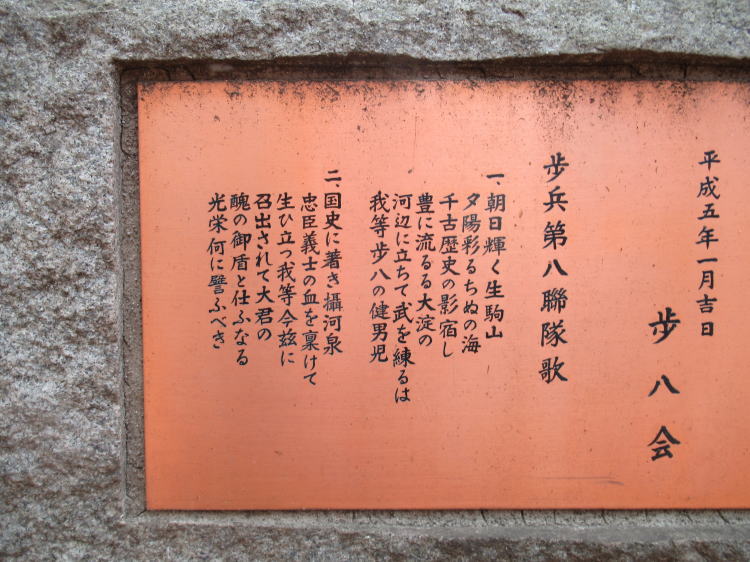 平成五年一月吉日
歩八会
歩兵第八聯隊歌
一、朝日輝く生駒山
夕陽彩るちぬの海
千古歴史の影宿し
豊に流るる大淀の
河辺に立ちて武を練るは
我等歩八の健男児
二、国史に著き攝河泉
忠臣義士の血を稟けて
生ひ立つ我等今茲に
召出されて大君の
醜の御盾と仕ふなる
光栄何に譬ふべき